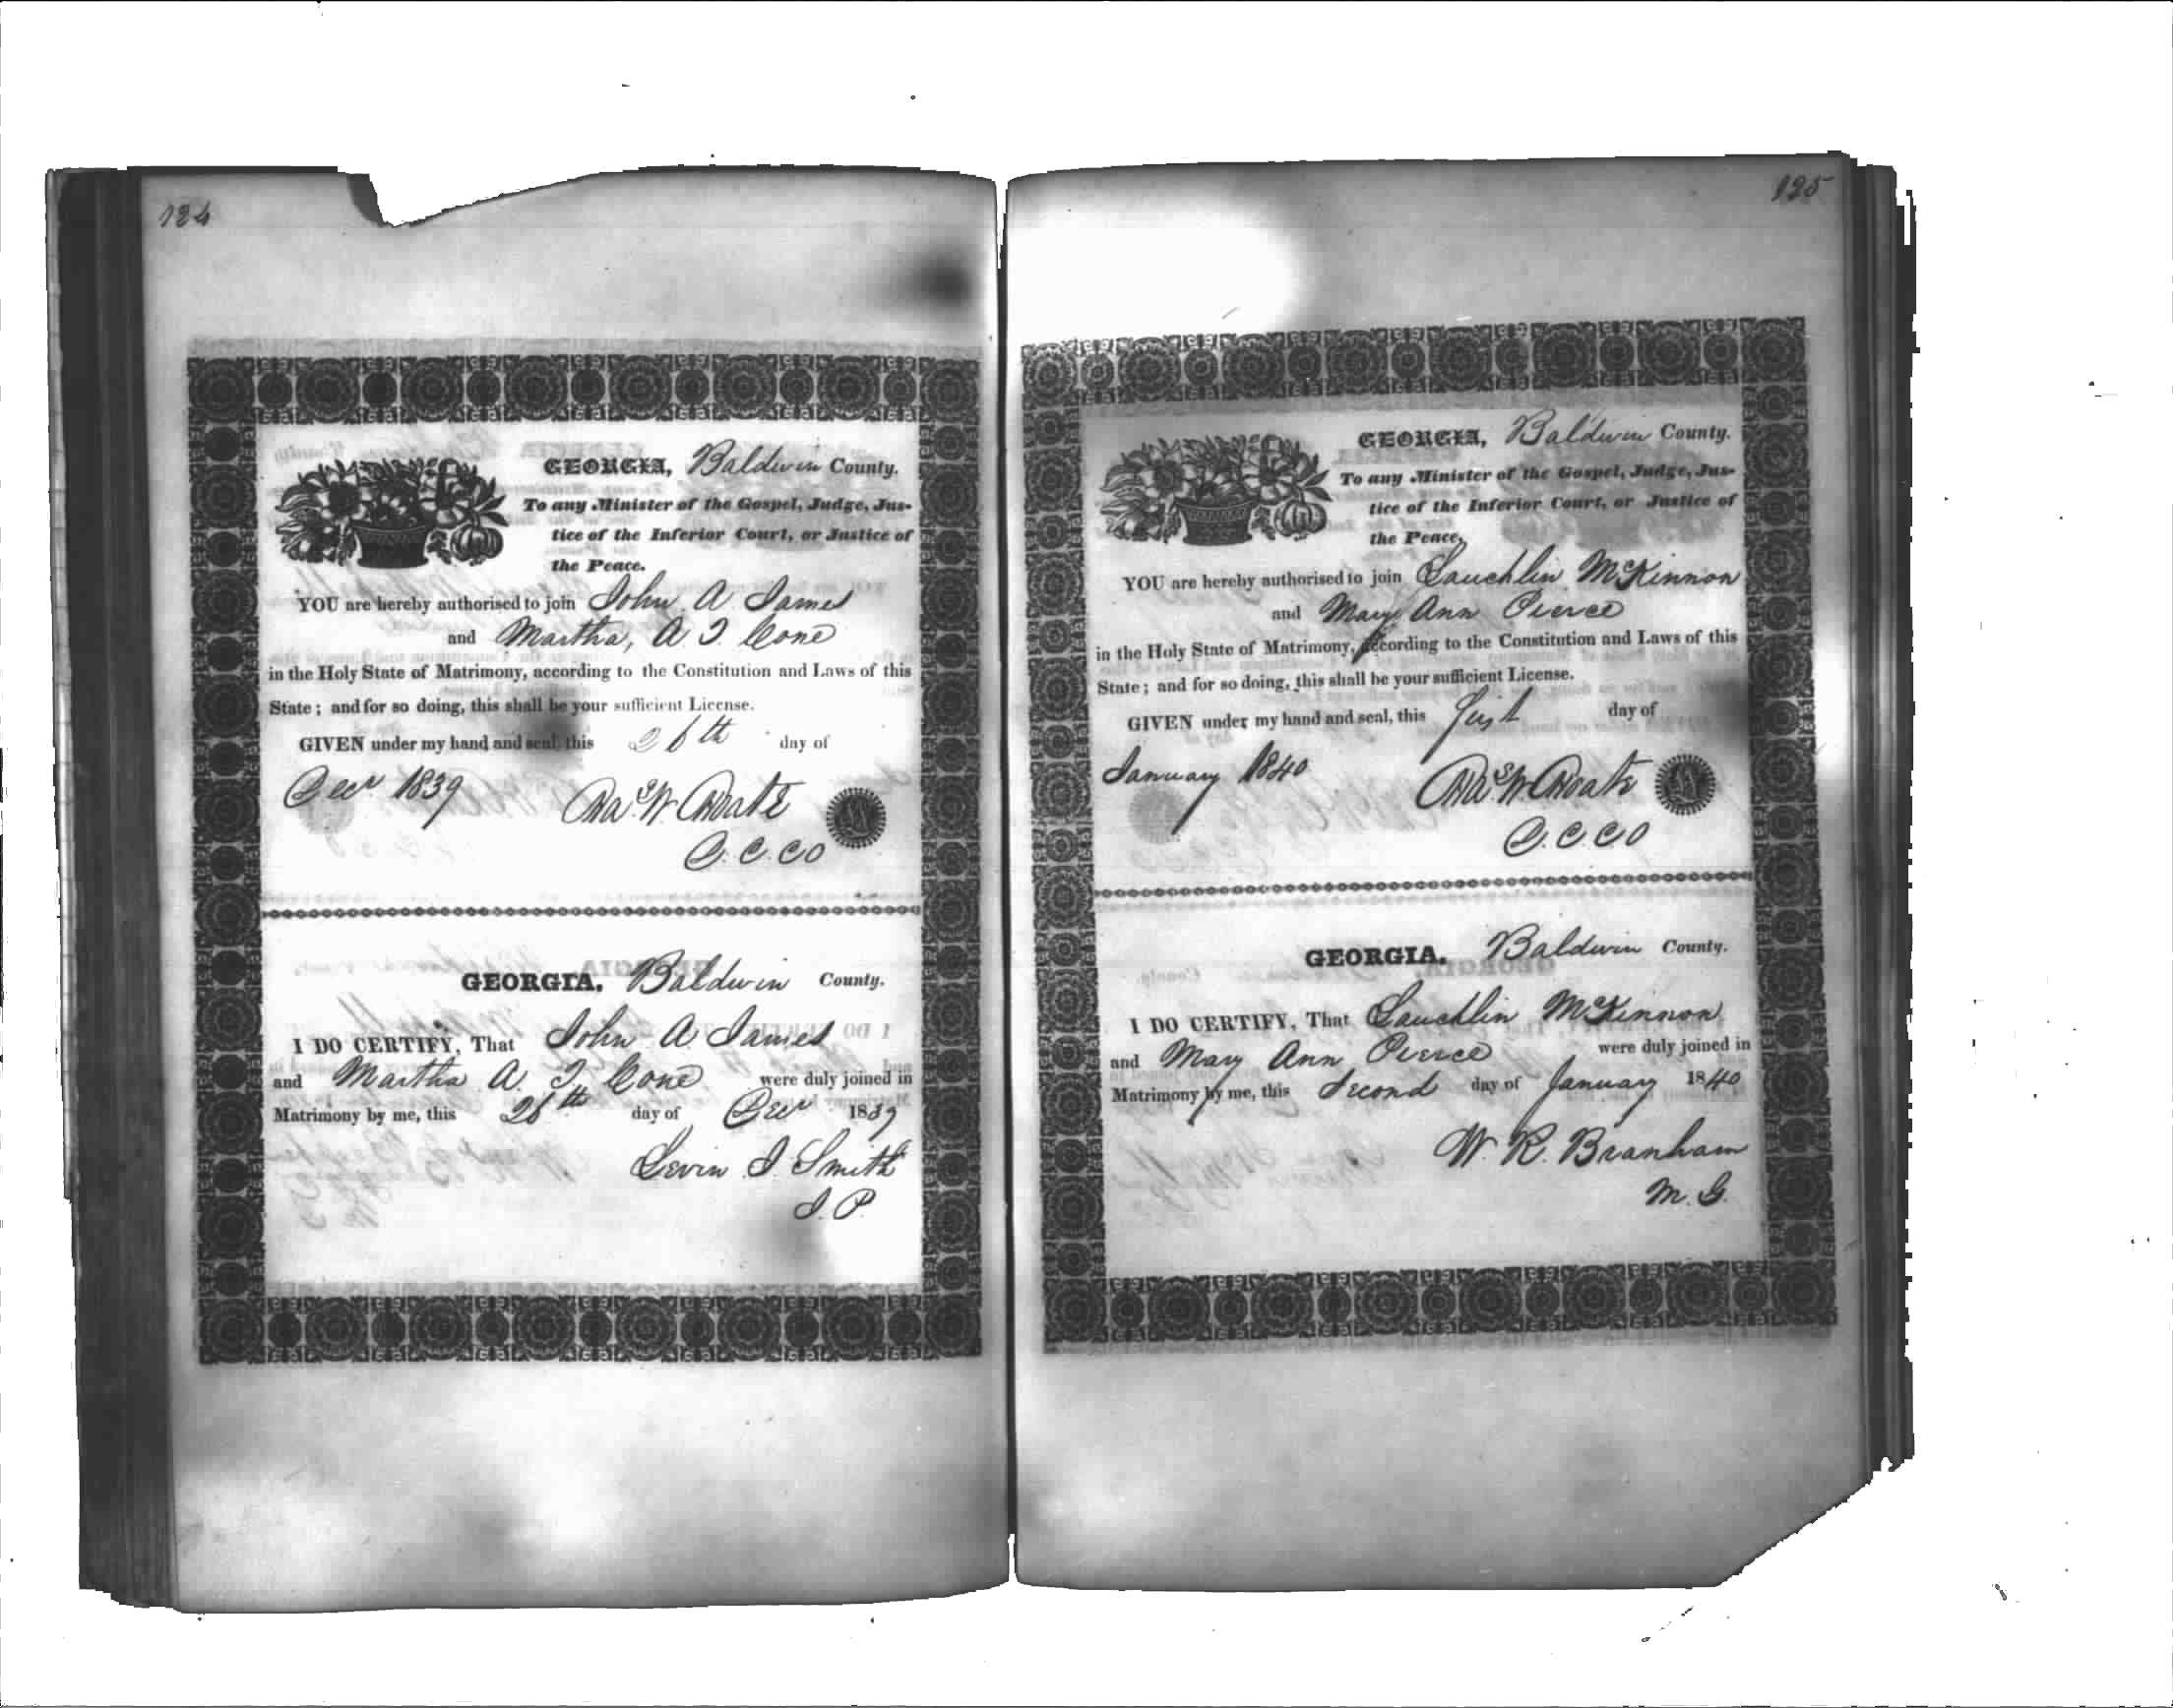 124
GEORGIA, Baldwin County.
To any Minister of the Gospel, Judge, Jus-
tice of the Inferior Court, or Justice of
the Peace.
YOU are hereby authorised to join John A James
and Martha, A. T. Cone
in the Holy State of Matrimony, according to the Constitution and Laws of this
State; and for so doing, this shall be your sufficient License.
GIVEN under my hand and seal, this 26th day of
Decr 1839
W. Choate
C. C. O
GEORGIA. Baldwin County.
I DO CERTIFY, That John A James
and Martha A. T. Cone were duly joined in
Matrimony by me, this 26th day of Decr 1839
Levin J. Smith
J. P.
125
GEORGIA, Baldwin County.
To any Minister of the Gospel, Judge, Jus-
tice of the Inferior Court, or Justice of
the Peace,
YOU are hereby authorised to join Lauchlin McKinnon
and Mary Ann Pierce
in the Holy State of Matrimony, according to the Constitution and Laws of this
State; and for so doing, this shall be your sufficient License.
GIVEN under my hand and seal, this first day of
January 1840
W. Choate
C. C. O
GEORGIA. Baldwin County.
I DO CERTIFY, That Lauchlin McKinnon
and Mary Ann Pierce were duly joined in
Matrimony by me, this Second day of January 1840
W. R. Branham
M. G.